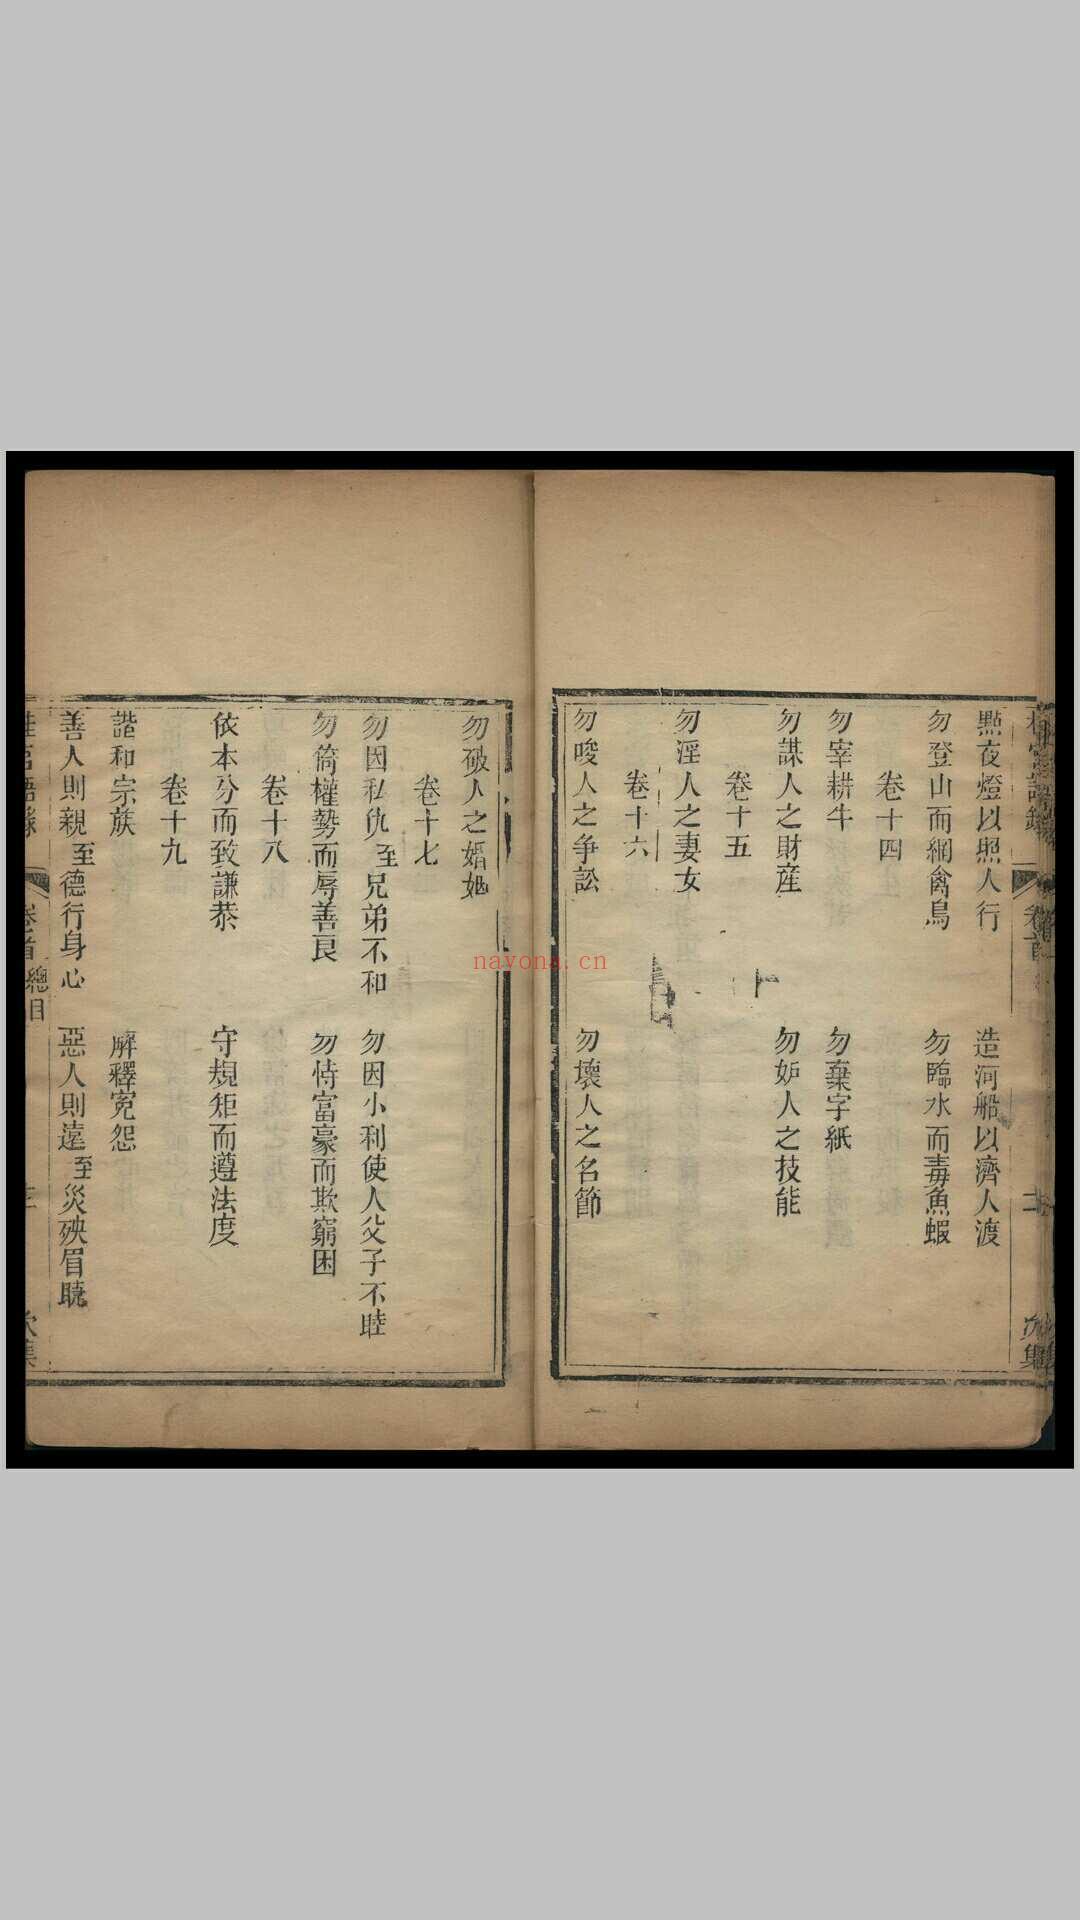 點夜燈以照人行　造河船以濟人渡
勿登山而網禽鳥　勿臨水而毒魚蝦
卷十四
勿宰耕牛　勿棄字紙
勿謀人之財産　勿妒人之技能
卷十五
勿淫人之妻女
卷十六
勿唆人之争訟　勿壞人之名節
勿破人之婚姻
卷十七
勿因私仇至兄弟不和　勿因小利使人父子不睦
勿倚權勢而辱善良　勿恃富豪而欺窮困
卷十八
依本分而致謙恭　守規矩而遵法度
卷十九
諧和宗族　解釋寃怨
善人則親至德行身心　惡人則遠至災殃眉睫
卷首　總目
nayona.cn